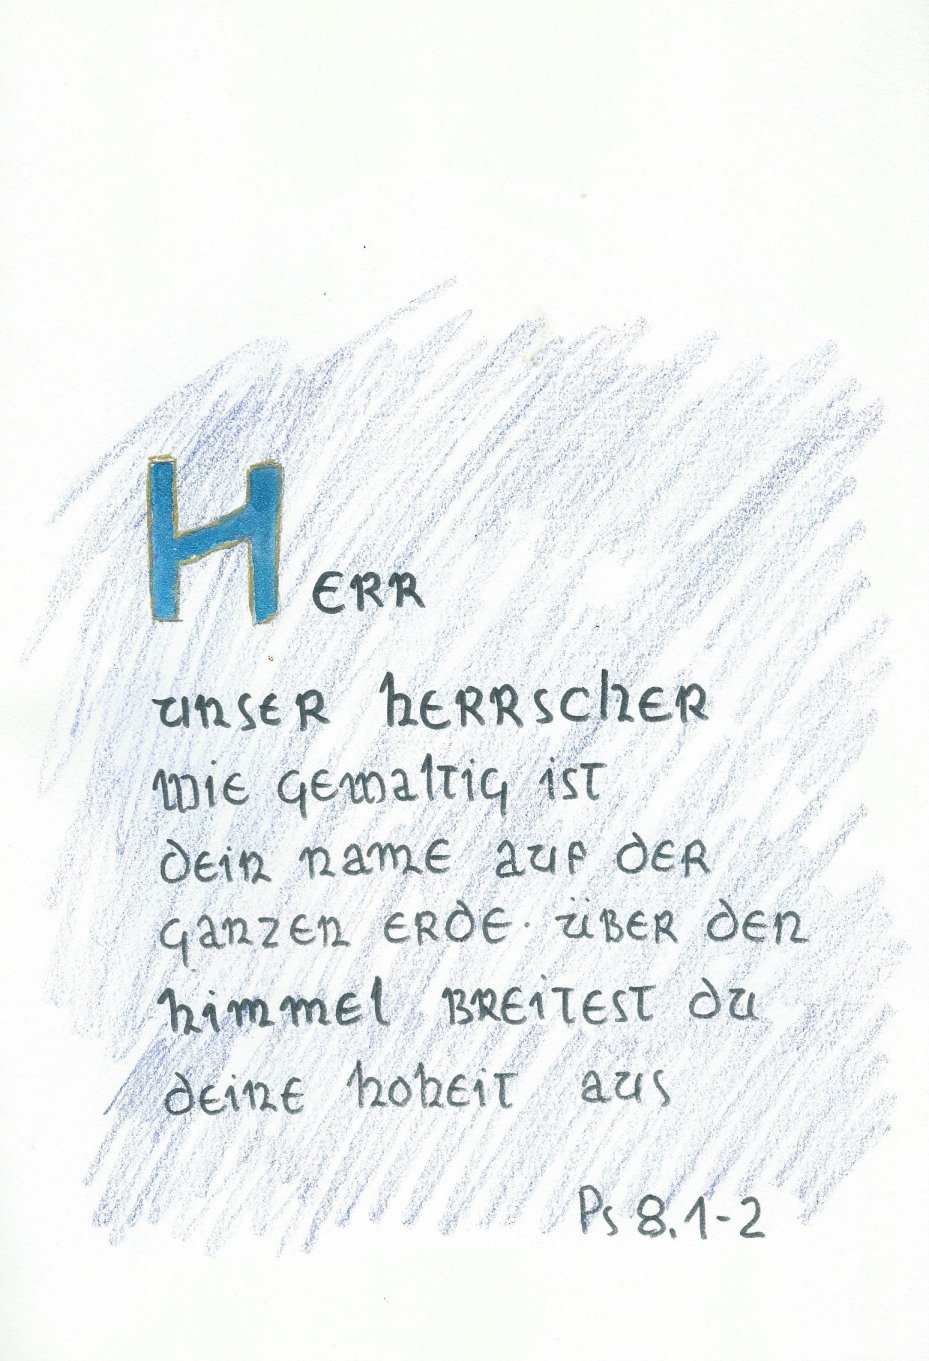 HERR
unser herrscher
wie gewaltig ist
dein name auf der
ganzen erde. über den
himmel breitest du
deine hoheit aus
Ps 8.1-2